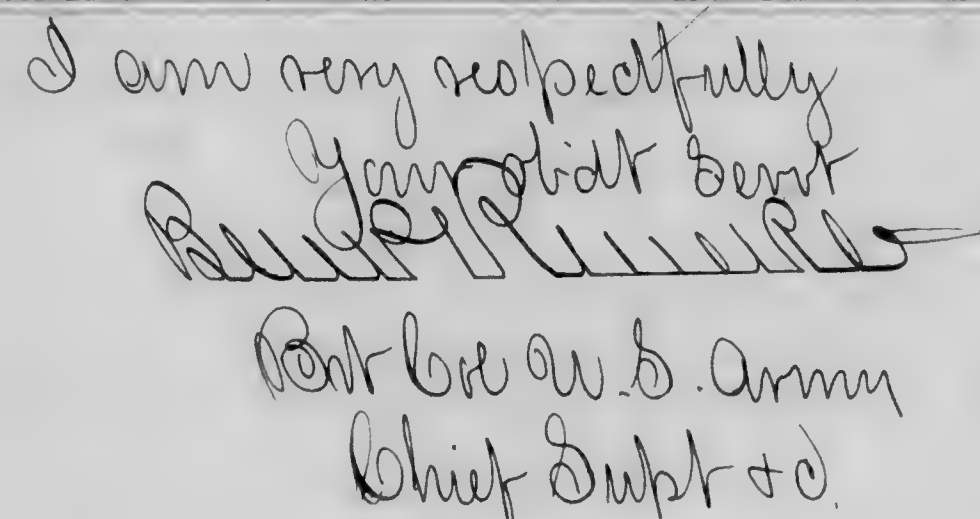 I am very respectfully
Your obidt Servt
Ben P Runkle
Bvt Col U.S. Army
Chief Supt &c.